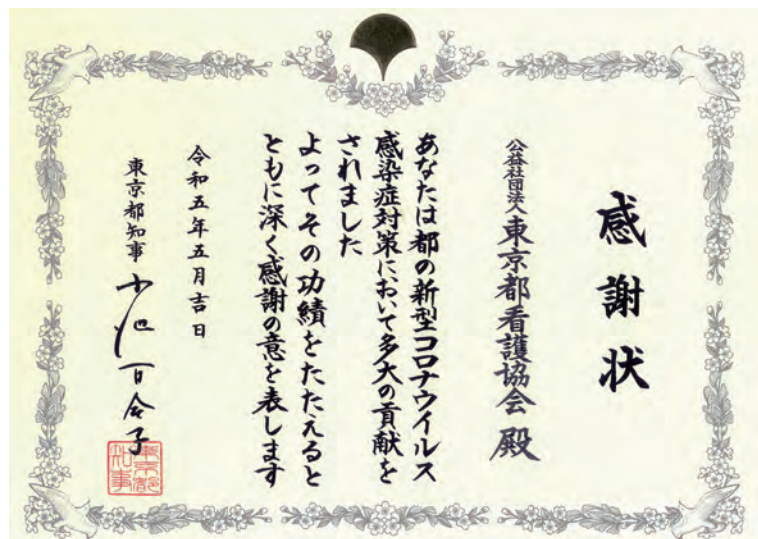 感謝状
公益社団法人東京都看護協会 殿
あなたは都の新型コロナウイルス
感染症対策において多大の貢献を
されました
よってその功績をたたえると
ともに深く感謝の意を表します
令和五年五月吉日
東京都知事 小池百合子
東京都
知事